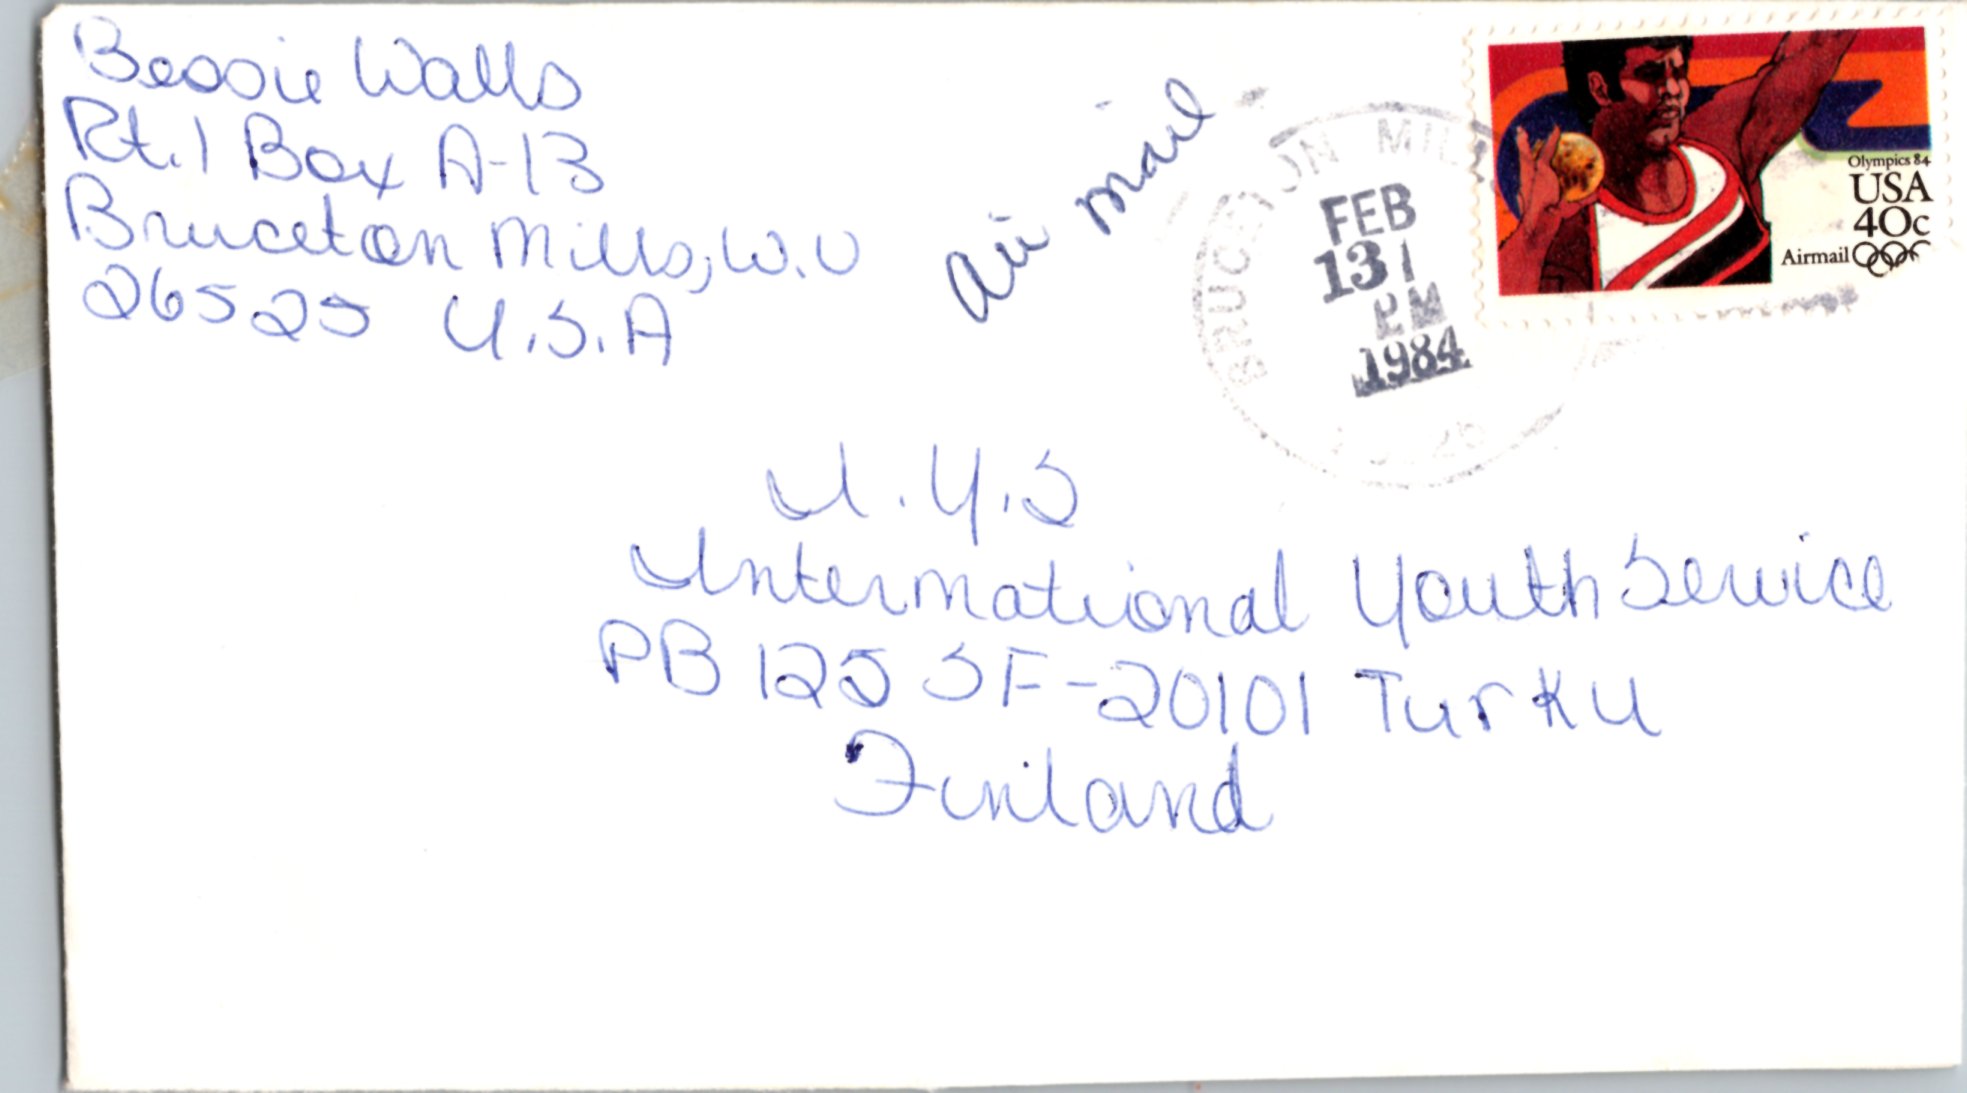 Bessie Walls
Rt. 1 Box A-13
Bruceton Mills, W.V
26525 U.S.A
Air Mail
BRUCETON MILLS
FEB
13 1
PM
1984
Olympics 84
USA
40c
Airmail
I.Y.S
International Youth Service
PB 125 SF-20101 Turku
Finland